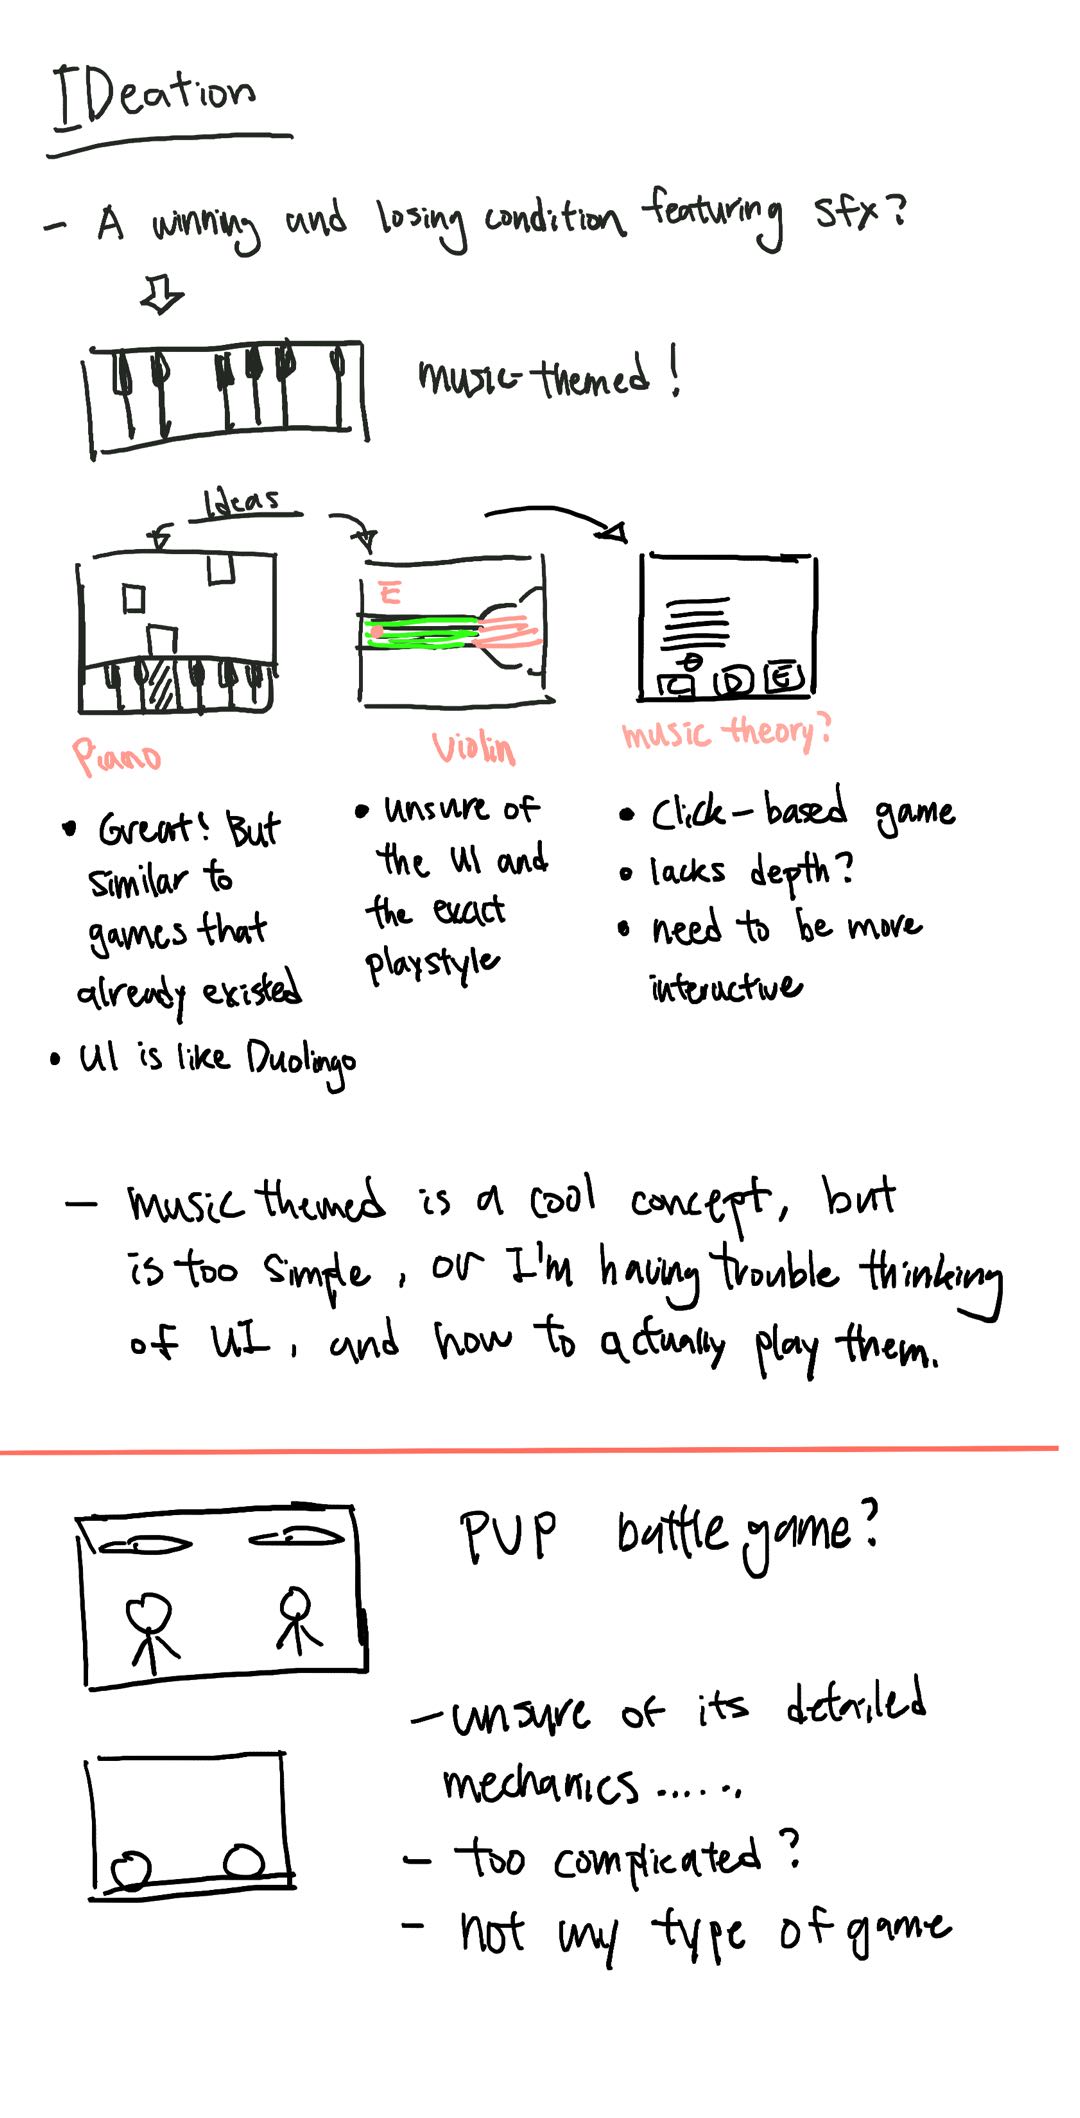 IDeation
- A winning and losing condition featuring sfx?
music-themed!
Ideas
E
C D E
Piano
Violin
music theory?
• Great! But
similar to
games that
already existed
• UI is like Duolingo
• unsure of
the UI and
the exact
playstyle
• Click-based game
• lacks depth?
• need to be more
interactive
- music themed is a cool concept, but
is too simple, or I'm having trouble thinking
of UI, and how to actually play them.
PVP battle game?
- unsure of its detailed
mechanics......
- too complicated?
- not my type of game